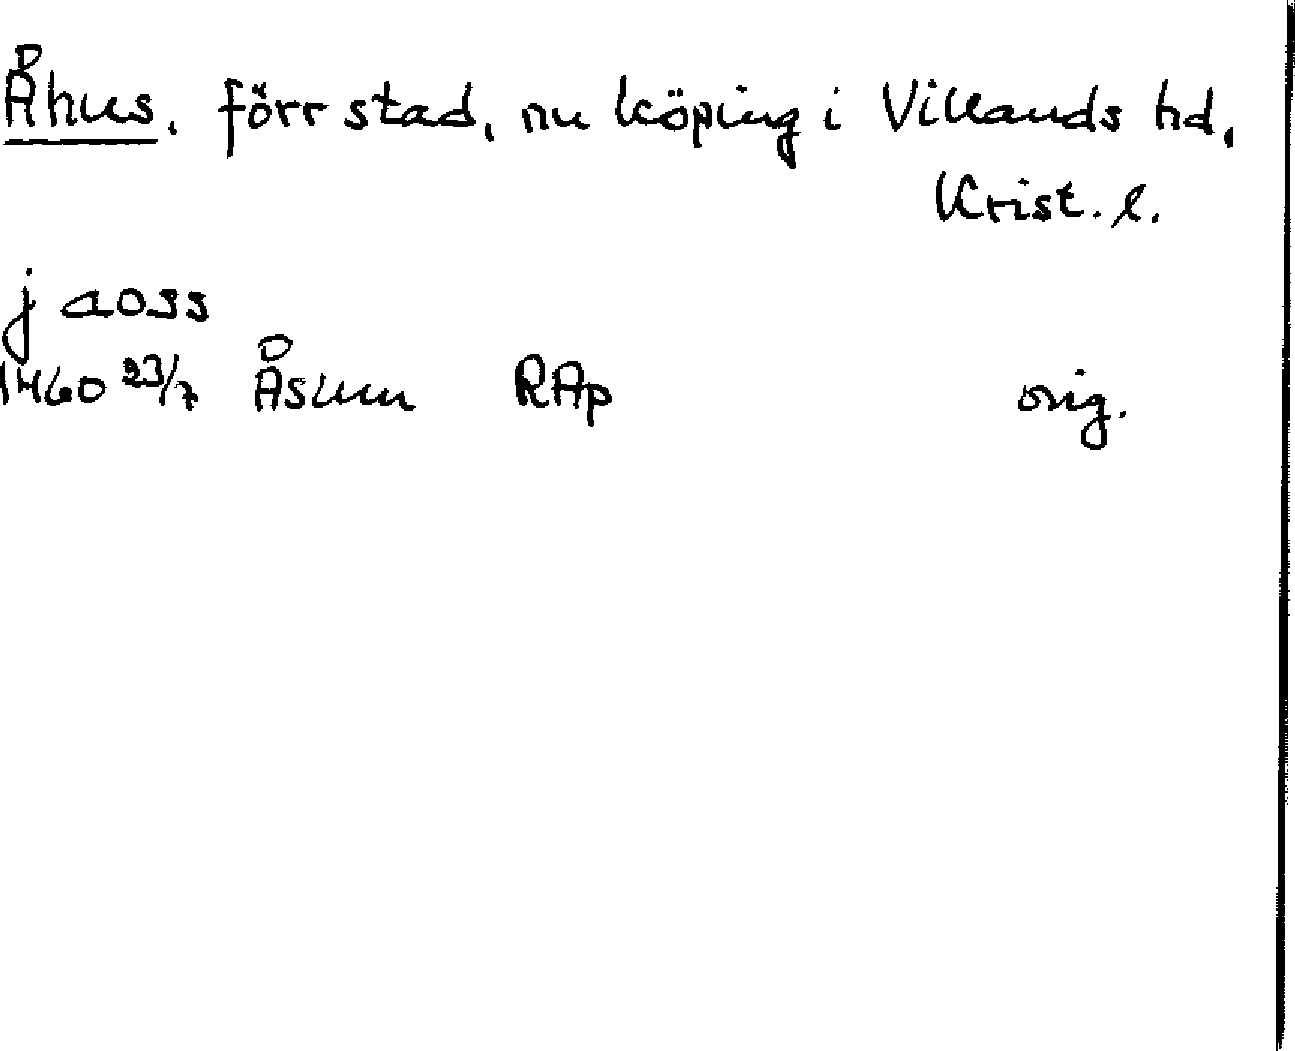 Åhus, förr stad, nu köping i Villands hd,
Krist. l.
j aoss
1460 23/7 Åsum RAp orig.